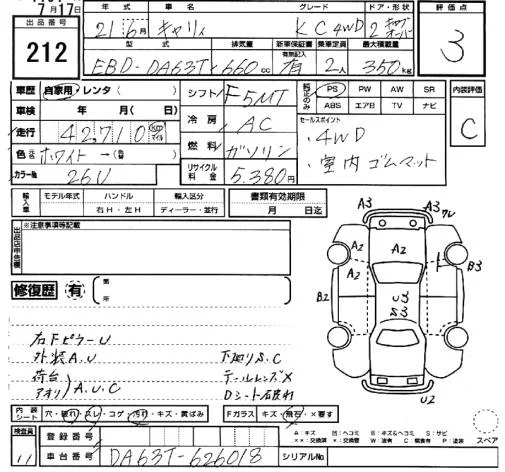 7月17日
年式 車名 グレード ドア・形状 評価点
出品番号 21年6月 キャリィ KC4WD 2 3
212
型式 排気量 新車保証書 乗車定員 最大積載量
有無記入
EBD-DA63T 660cc 有 2人 350kg
車歴 自家用・レンタ( ) シフト F5MT 純正のみ PS PW AW SR 内装評価
ABS エアB TV ナビ C
車検 年 月( 日) 冷房 AC セールスポイント
走行 42,710 km マイル 燃料 ガソリン ・4WD
色 ホワイト→( ) ・室内ゴムマット
カラーNo 26U リサイクル料金 5,380円
輸入車 モデル年式 ハンドル 輸入区分 書類有効期限
右H・左H ディーラー・並行 月 日迄
出品店申告欄 ※注意事項等記載
A3 A3
A2 A2 A2 B3
修復歴 有 箇所 B2 U3
S3
U2
右下ピラーU
外装A.U 下廻りS.C
荷台 テールレンズ×
アオリ A.U.C Dシート破れ
内装シート 穴・破れ・スレ・コゲ・汚れ・キズ・黄ばみ Fガラス キズ・飛石・×要す
検査員 登録番号 A:キズ U:ヘコミ B:キズ&ヘコミ S:サビ
××:交換済 ×:交換 W:波有 C:腐食有 P:塗装 スペア
11 車台番号 DA63T-626018 シリアルNo